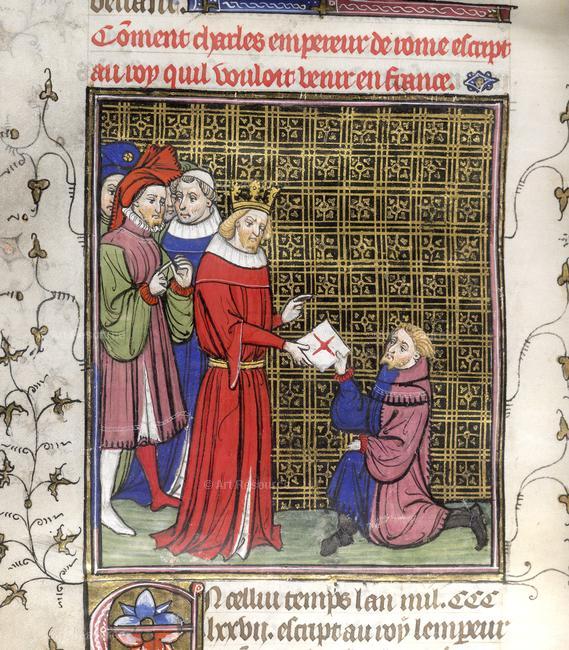 deuant.
Cõment charles empereur de rome escript
au roy quil vouloit venir en france.
© Art Resour
En cellui temps lan mil. CCC
lxxvij. escript au roy lempereur